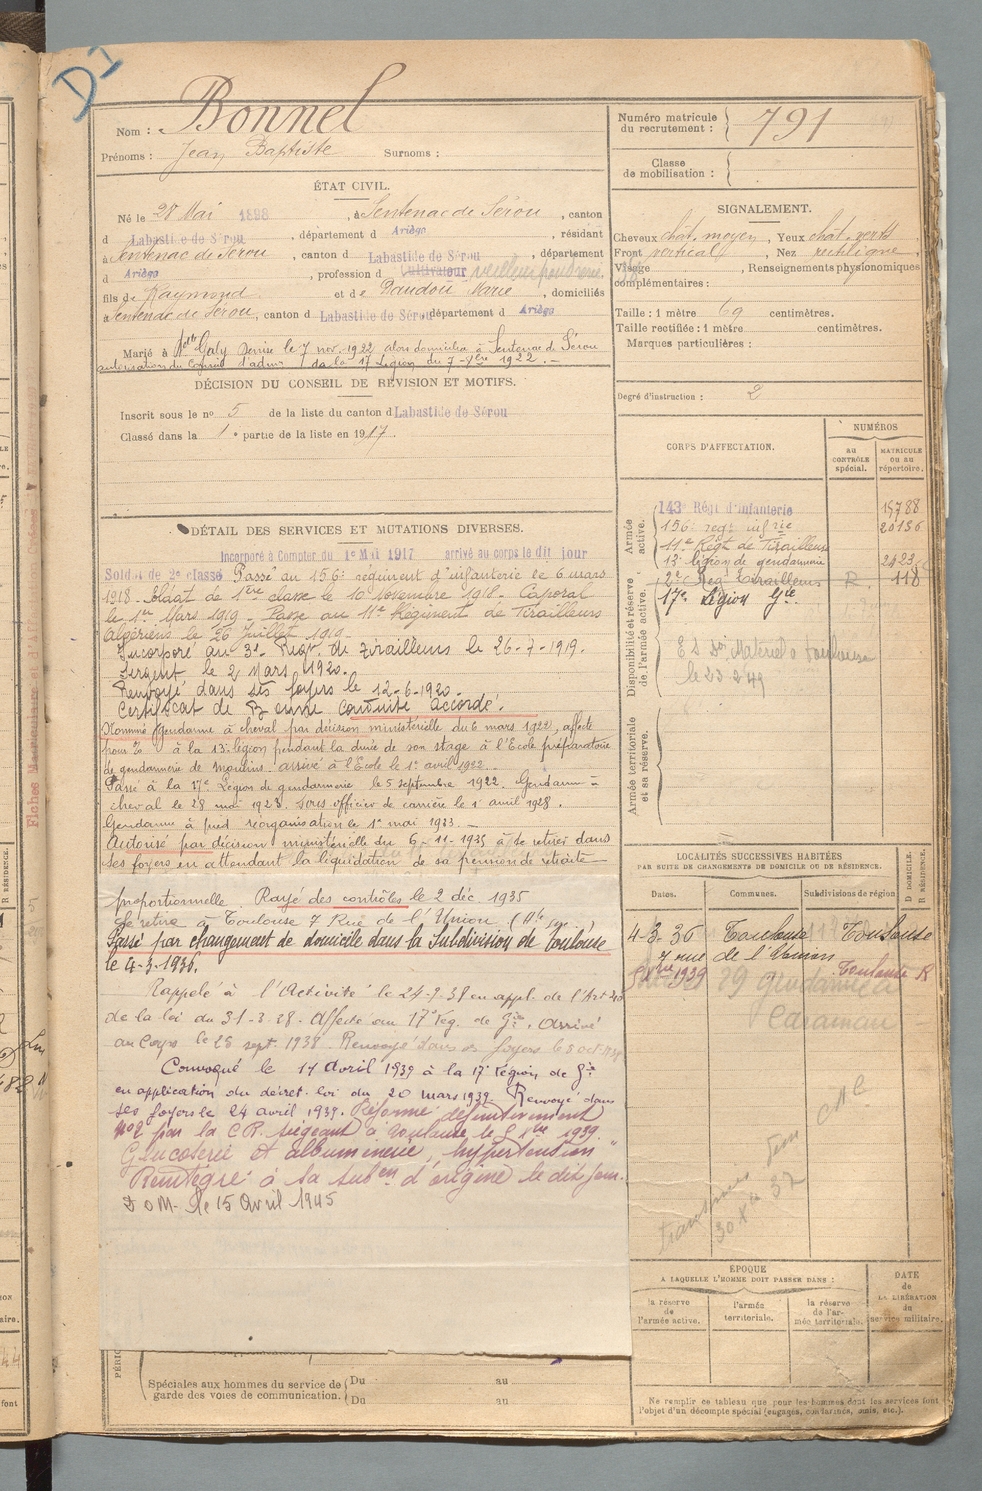 D1
Nom : Bonnel
Prénoms : Jean Baptiste Surnoms :
Numéro matricule du recrutement : 791
Classe de mobilisation :
ÉTAT CIVIL.
Né le 28 Mai 1898, à Sentenac de Sérou, canton
d Labastide de Sérou, département d Ariège, résidant
à Sentenac de Sérou, canton d Labastide de Sérou, département
d Ariège, profession d Cultivateur
fils de Raymond et de Dandou Marie, domiciliés
à Sentenac de Sérou, canton d Labastide de Sérou département d Ariège
Marié à Melle Galy Denise le 7 nov. 1922 alors domiciliée à Sentenac de Sérou
autorisation du Conseil d'admon de la 17 Légion du 7-9bre 1922.
SIGNALEMENT.
Cheveux chât. moyen, Yeux chât. verts
Front vertical, Nez rectiligne
Visage, Renseignements physionomiques
complémentaires :
Taille : 1 mètre 69 centimètres.
Taille rectifiée : 1 mètre centimètres.
Marques particulières :
Degré d'instruction : 2
DÉCISION DU CONSEIL DE RÉVISION ET MOTIFS.
Inscrit sous le no 5 de la liste du canton d Labastide de Sérou
Classé dans la 1e partie de la liste en 1917.
DÉTAIL DES SERVICES ET MUTATIONS DIVERSES.
Incorporé à Compter du 1er Mai 1917 arrivé au corps le dit jour
Soldat de 2e classe Passé au 156e régiment d'infanterie le 6 mars
1918. Soldat de 1ère classe le 10 novembre 1918. Caporal
le 1er Mars 1919. Passé au 11e Régiment de Tirailleurs
algériens le 26 Juillet 1919.
Incorporé au 3e Régt de Tirailleurs le 26-7-1919.
Sergent le 2 Mars 1920.
Renvoyé dans ses foyers le 12-6-1920.
Certificat de Bonne Conduite accordé.
Nommé gendarme à cheval par décision ministérielle du 6 mars 1922, affecté
pour % à la 13e légion pendant la durée de son stage à l'Ecole préparatoire
de gendarmerie de Moulins. arrivé à l'Ecole le 1er avril 1922.
Passé à la 17e Légion de gendarmerie le 5 septembre 1922. Gendarme à
cheval le 28 mai 1923. Sous officier de carrière le 1er avril 1928.
Gendarme à pied réorganisation le 1er mai 1933.
Autorisé par décision ministérielle du 6-11-1935 à se retirer dans
ses foyers en attendant la liquidation de sa pension de retraite
proportionnelle. Rayé des contrôles le 2 déc. 1935
Se retire à Toulouse 7 Rue de l'Union (Hte Gne)
Passé par changement de domicile dans la Subdivision de Toulouse
le 4-3-1936.
Rappelé à l'Activité le 24-9-38 en appl. de l'Art 40
de la loi du 31-3-28. Affecté au 17e Lég. de Gie. Arrivé
au Corps le 25 sept. 1938. Renvoyé dans ses foyers le 5 oct. 1938
Convoqué le 14 Avril 1939 à la 17e légion de Gie
en application du décret-loi du 20 mars 1939. Renvoyé dans
ses foyers le 24 avril 1939. Réformé définitivement
No 2 par la C.R. siégeant à Toulouse le 1939.
Glucoserie et albuminerie, hypertension"
Réintégré à sa subon d'origine le dit jour.
D O M. le 15 Avril 1945
CORPS D'AFFECTATION.
NUMÉROS
AU CONTRÔLE spécial.
MATRICULE ou au répertoire.
Armée active.
143e Régt d'infanterie 15788
156e regt infrie 20156
11e Régt de Tirailleurs
13e légion de gendarmerie 2423
Disponibilité et réserve de l'armée active.
2e Rég Tirailleurs R. 118
17e Légion Gie
Matériel Toulouse
le 23-2-49
Armée territoriale et sa réserve.
LOCALITÉS SUCCESSIVES HABITÉES
PAR SUITE DE CHANGEMENTS DE DOMICILE OU DE RÉSIDENCE.
Dates. Communes. Subdivisions de région D DOMICILE. R RÉSIDENCE.
4-3-36 Toulouse Toulouse
7 rue de l'Union
1939 Toulouse R
gendarmerie à
Caraman
30 Xbre 37
ÉPOQUE
A LAQUELLE L'HOMME DOIT PASSER DANS :
la réserve de l'armée active.
l'armée territoriale.
la réserve de l'armée territoriale.
DATE de LA LIBÉRATION du service militaire.
Spéciales aux hommes du service de garde des voies de communication.
Du au
Du au
Ne remplir ce tableau que pour les hommes dont les services font
l'objet d'un décompte spécial (engagés, condamnés, omis, etc.).